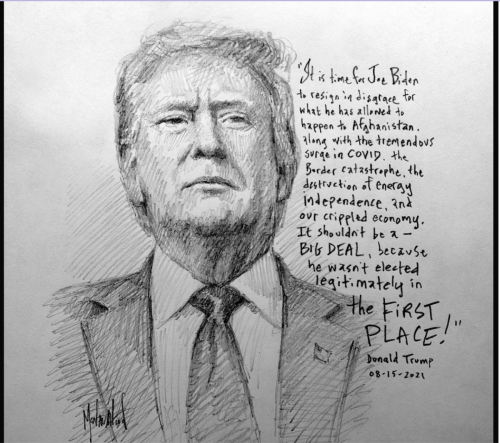 "It is time for Joe Biden
to resign in disgrace for
what he has allowed to
happen to Afghanistan.
along with the tremendous
surge in COVID. the
Border catastrophe, the
destruction of energy
independence, and
our crippled economy.
It shouldn't be a —
BIG DEAL, because
he wasn't elected
legitimately in
the FIRST
PLACE!"
Donald Trump
08-15-2021